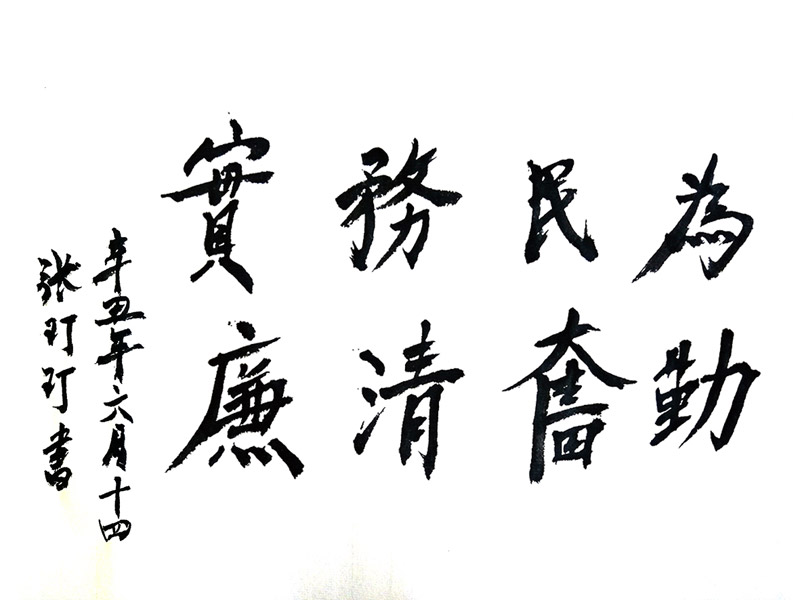 為民務實
勤奮清廉
辛丑年六月十四
张玎玎書